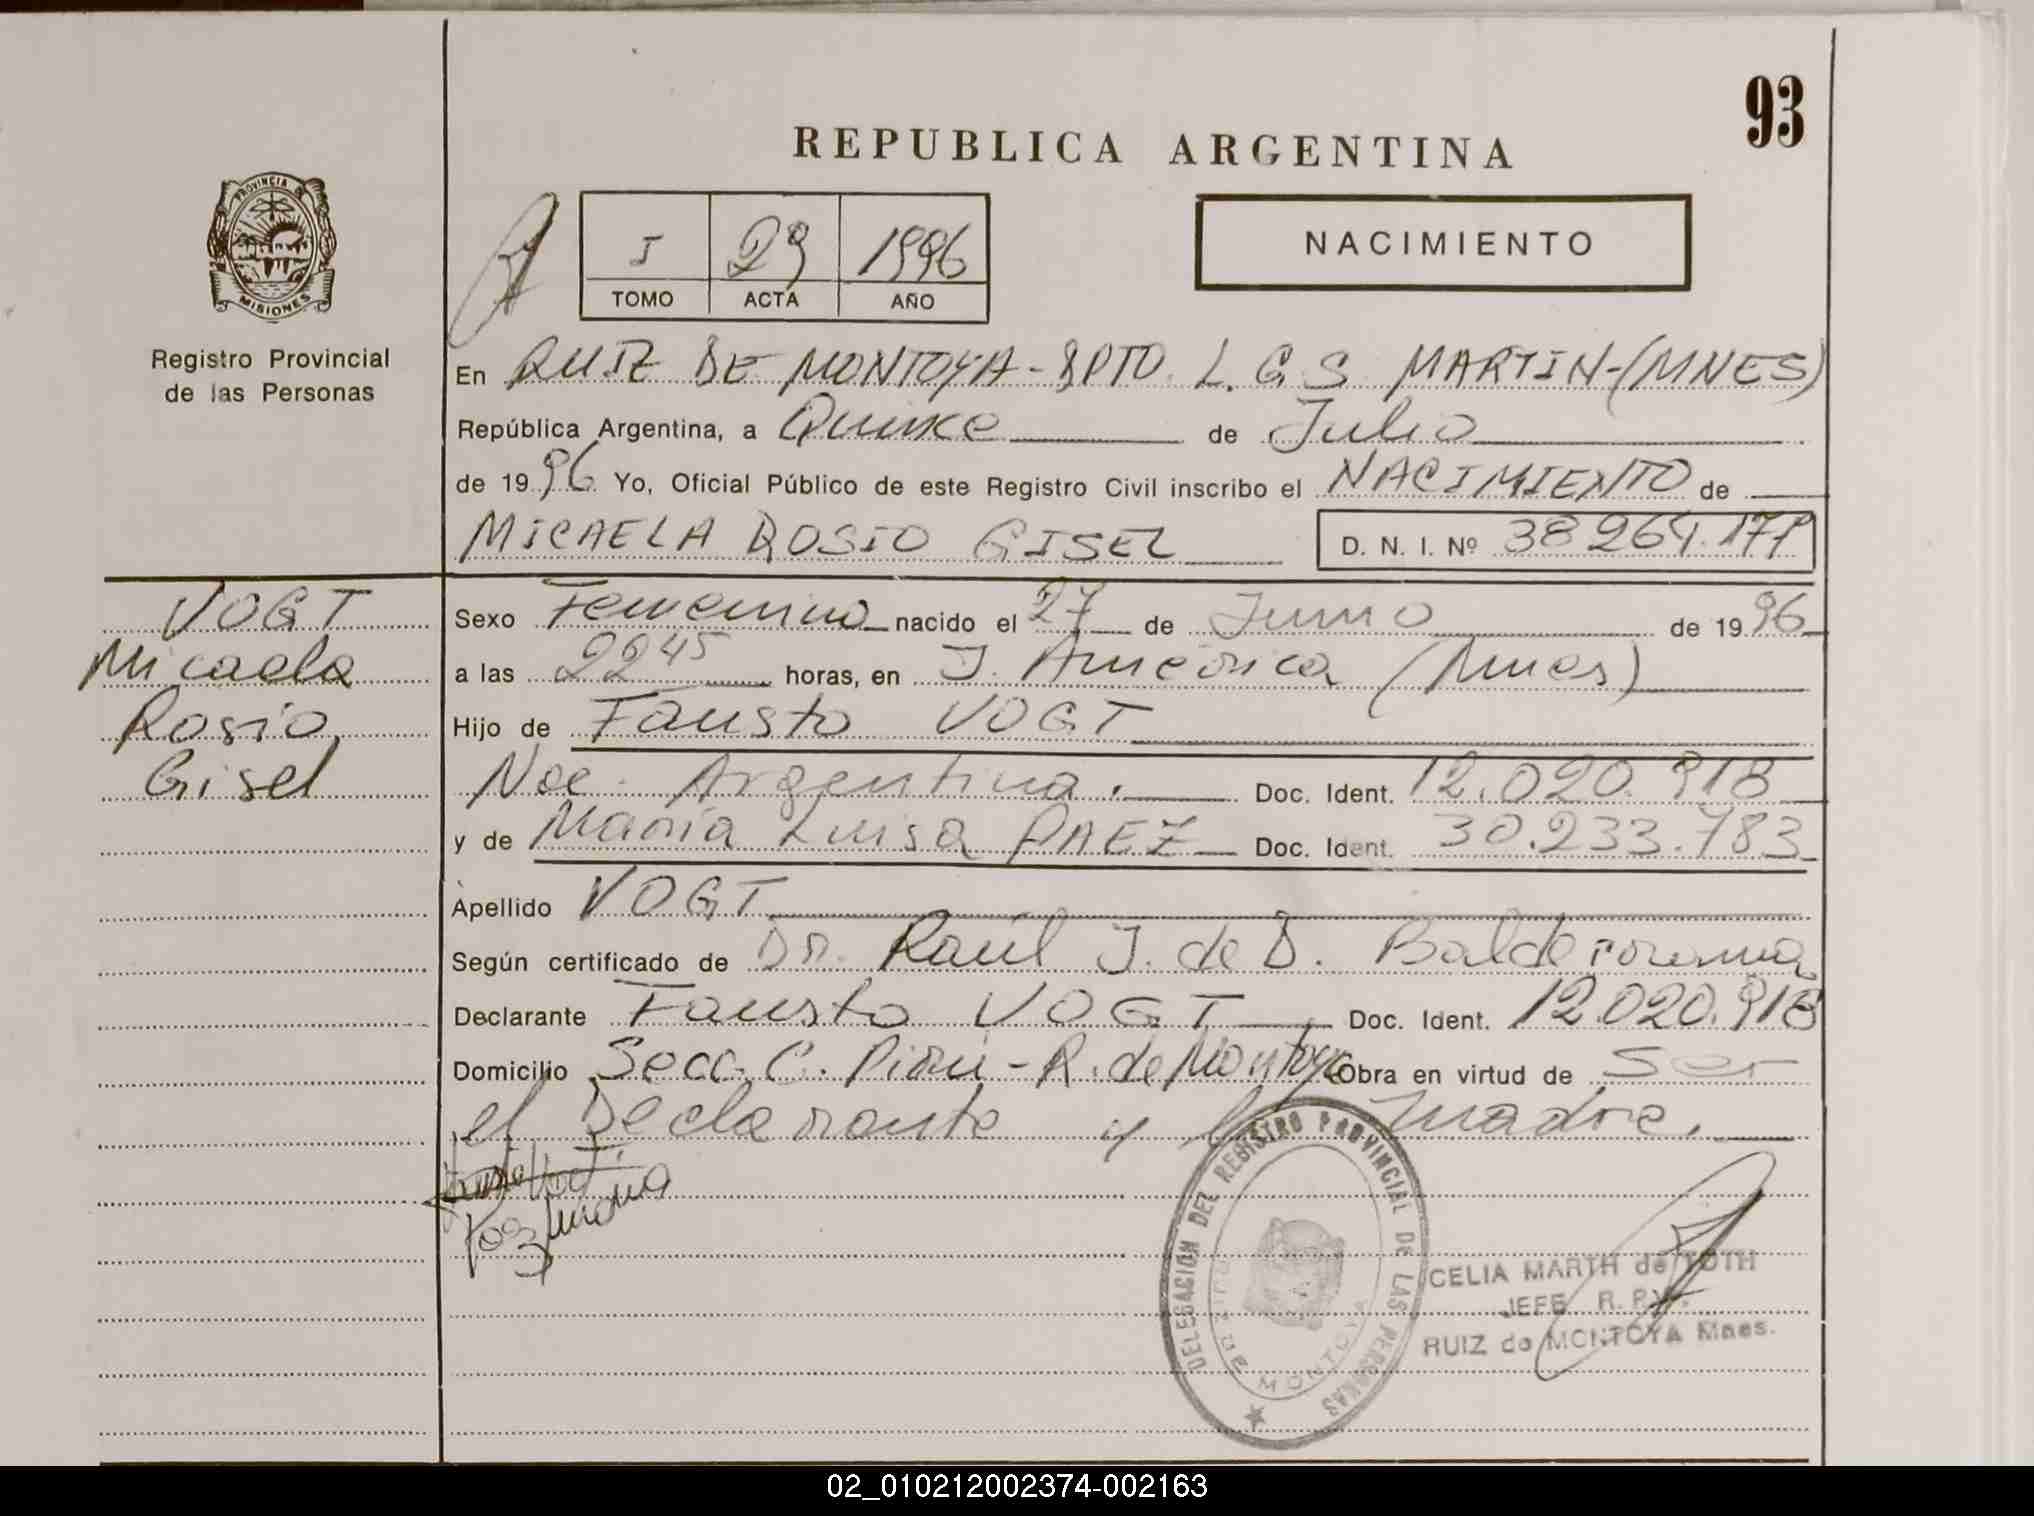 93
REPUBLICA ARGENTINA
PROVINCIA DE
MISIONES
Registro Provincial
de las Personas
I 29 1996
TOMO ACTA AÑO
NACIMIENTO
En RUIZ DE MONTOYA - DPTO. L. G. S. MARTIN - (MNES)
República Argentina, a Quince de Julio
de 1996 Yo, Oficial Público de este Registro Civil inscribo el NACIMIENTO de
MICAELA ROSIO GISEL D. N. I. Nº 38 264.171
VOGT
Micaela
Rosio
Gisel
Sexo Femenino nacido el 27 de Junio de 1996
a las 22 45 horas, en J. América (Mnes)
Hijo de Fausto VOGT
Nac. Argentina. Doc. Ident. 12.020.918
y de María Luisa PAEZ Doc. Ident. 30.233.783
Apellido VOGT
Según certificado de Dr. Raúl J. de D. Balderrama
Declarante Fausto VOGT Doc. Ident. 12.020.918
Domicilio Secc. C. Pirú - R. de Montoya Obra en virtud de Ser
el Declarante y la madre.
Paez Maria
DELEGACION DEL REGISTRO PROVINCIAL DE LAS PERSONAS
RUIZ DE MONTOYA
CELIA MARTH de TOTH
JEFE R. P. P.
RUIZ de MONTOYA Mnes.
02_010212002374-002163